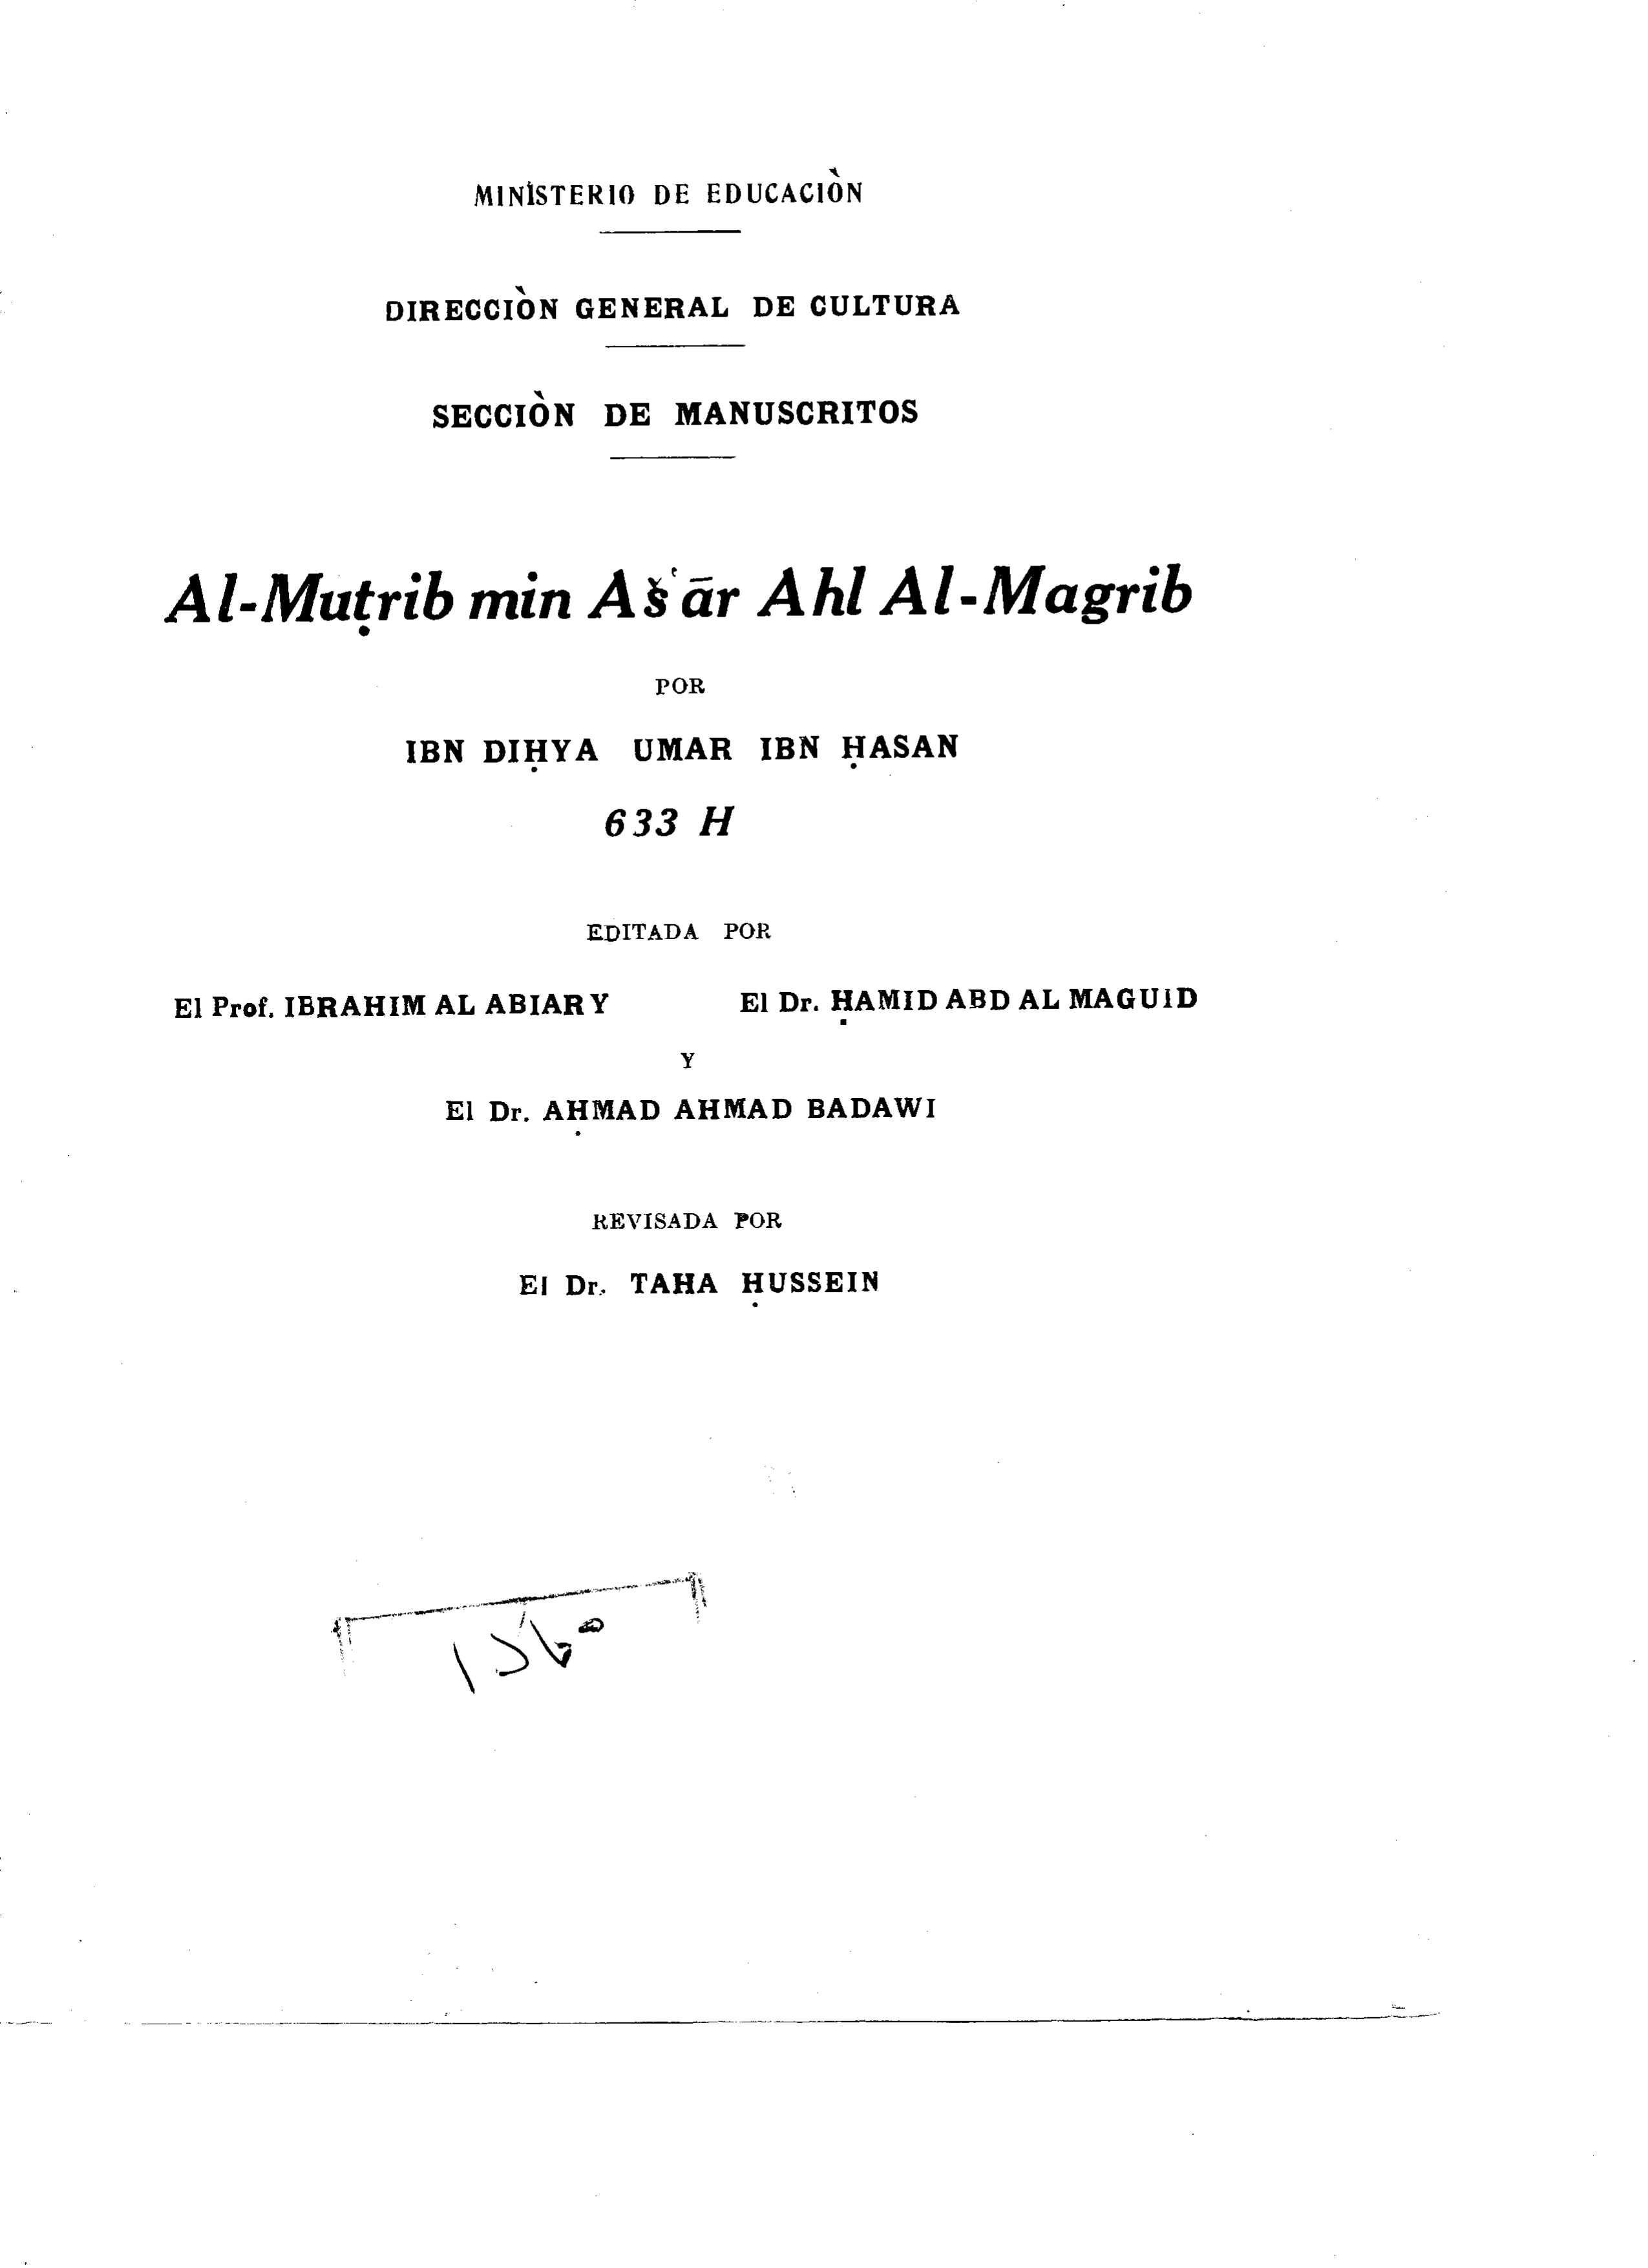 MINISTERIO DE EDUCACIÒN
DIRECCIÒN GENERAL DE CULTURA
SECCIÒN DE MANUSCRITOS
Al-Muṭrib min Aš‘ār Ahl Al-Magrib
POR
IBN DIḤYA UMAR IBN ḤASAN
633 H
EDITADA POR
El Prof. IBRAHIM AL ABIARY El Dr. ḤAMID ABD AL MAGUID
Y
El Dr. AḤMAD AHMAD BADAWI
REVISADA POR
El Dr. TAHA ḤUSSEIN